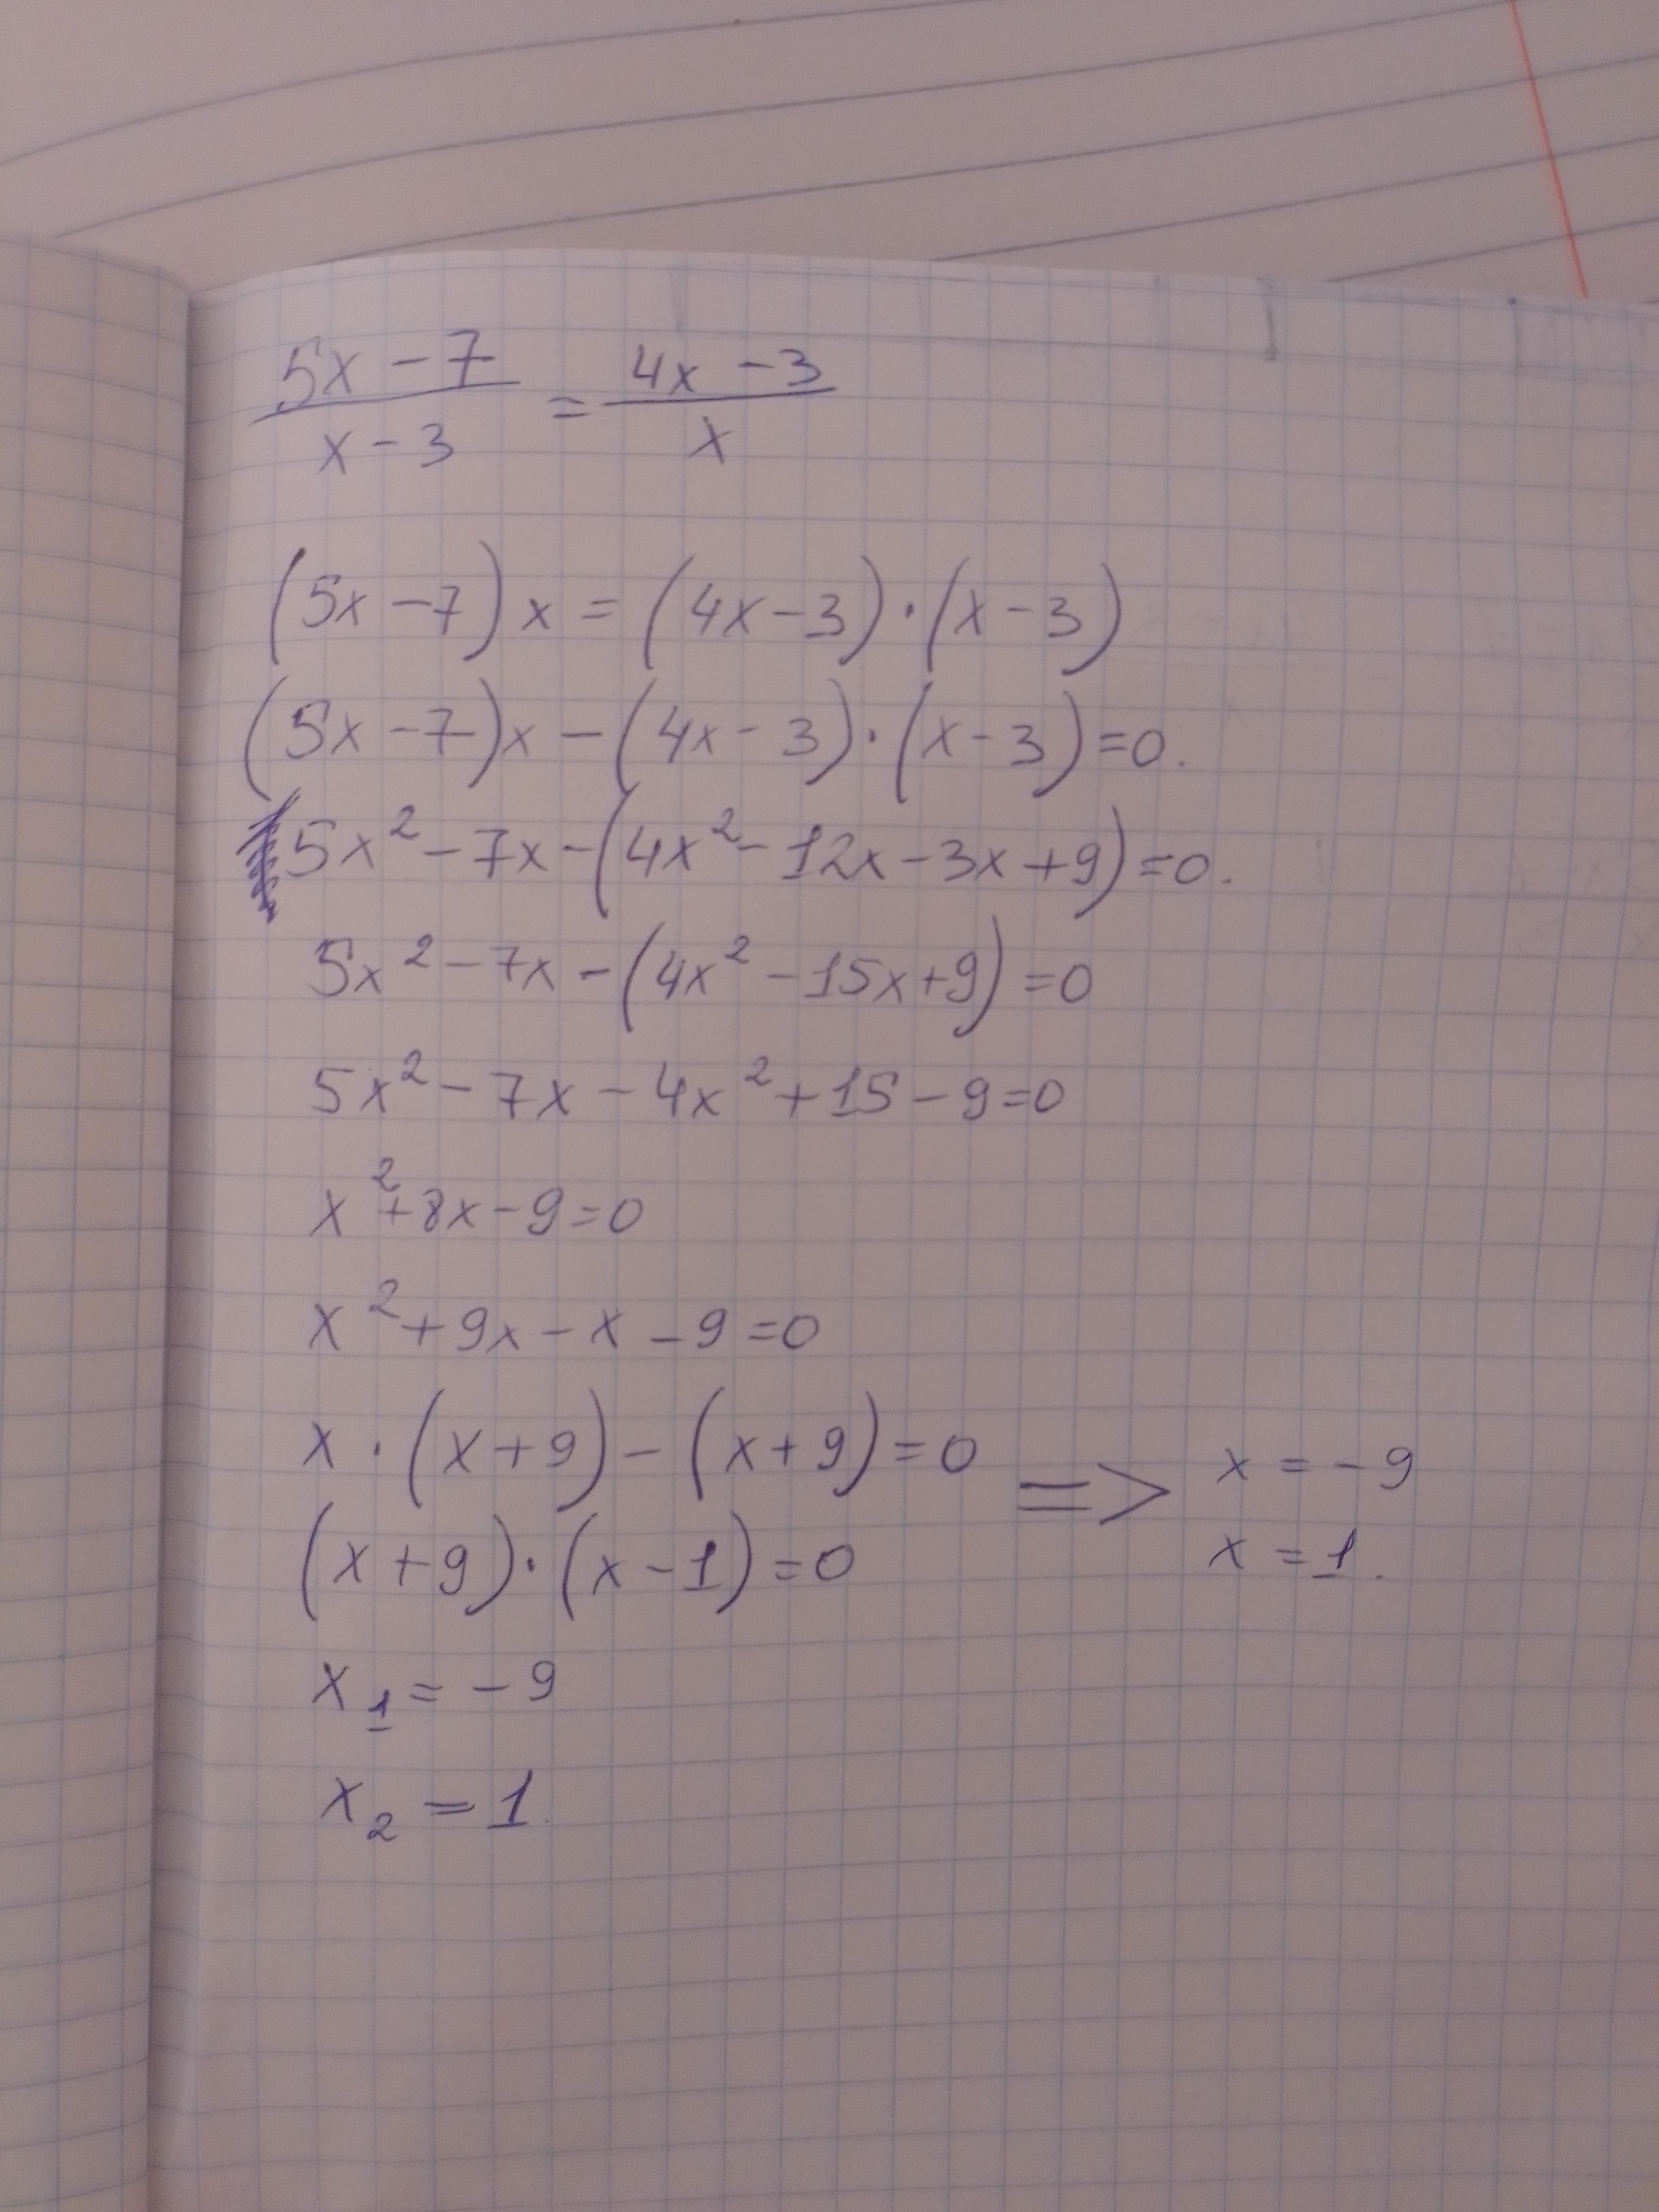 (5x - 7)/(x - 3) = (4x - 3)/x
(5x - 7) x = (4x - 3) · (x - 3)
(5x - 7) x - (4x - 3) · (x - 3) = 0.
5x² - 7x - (4x² - 12x - 3x + 9) = 0.
5x² - 7x - (4x² - 15x + 9) = 0
5x² - 7x - 4x² + 15 - 9 = 0
x² + 8x - 9 = 0
x² + 9x - x - 9 = 0
x · (x + 9) - (x + 9) = 0
(x + 9) · (x - 1) = 0
=> x = -9
x = 1.
x₁ = -9
x₂ = 1.